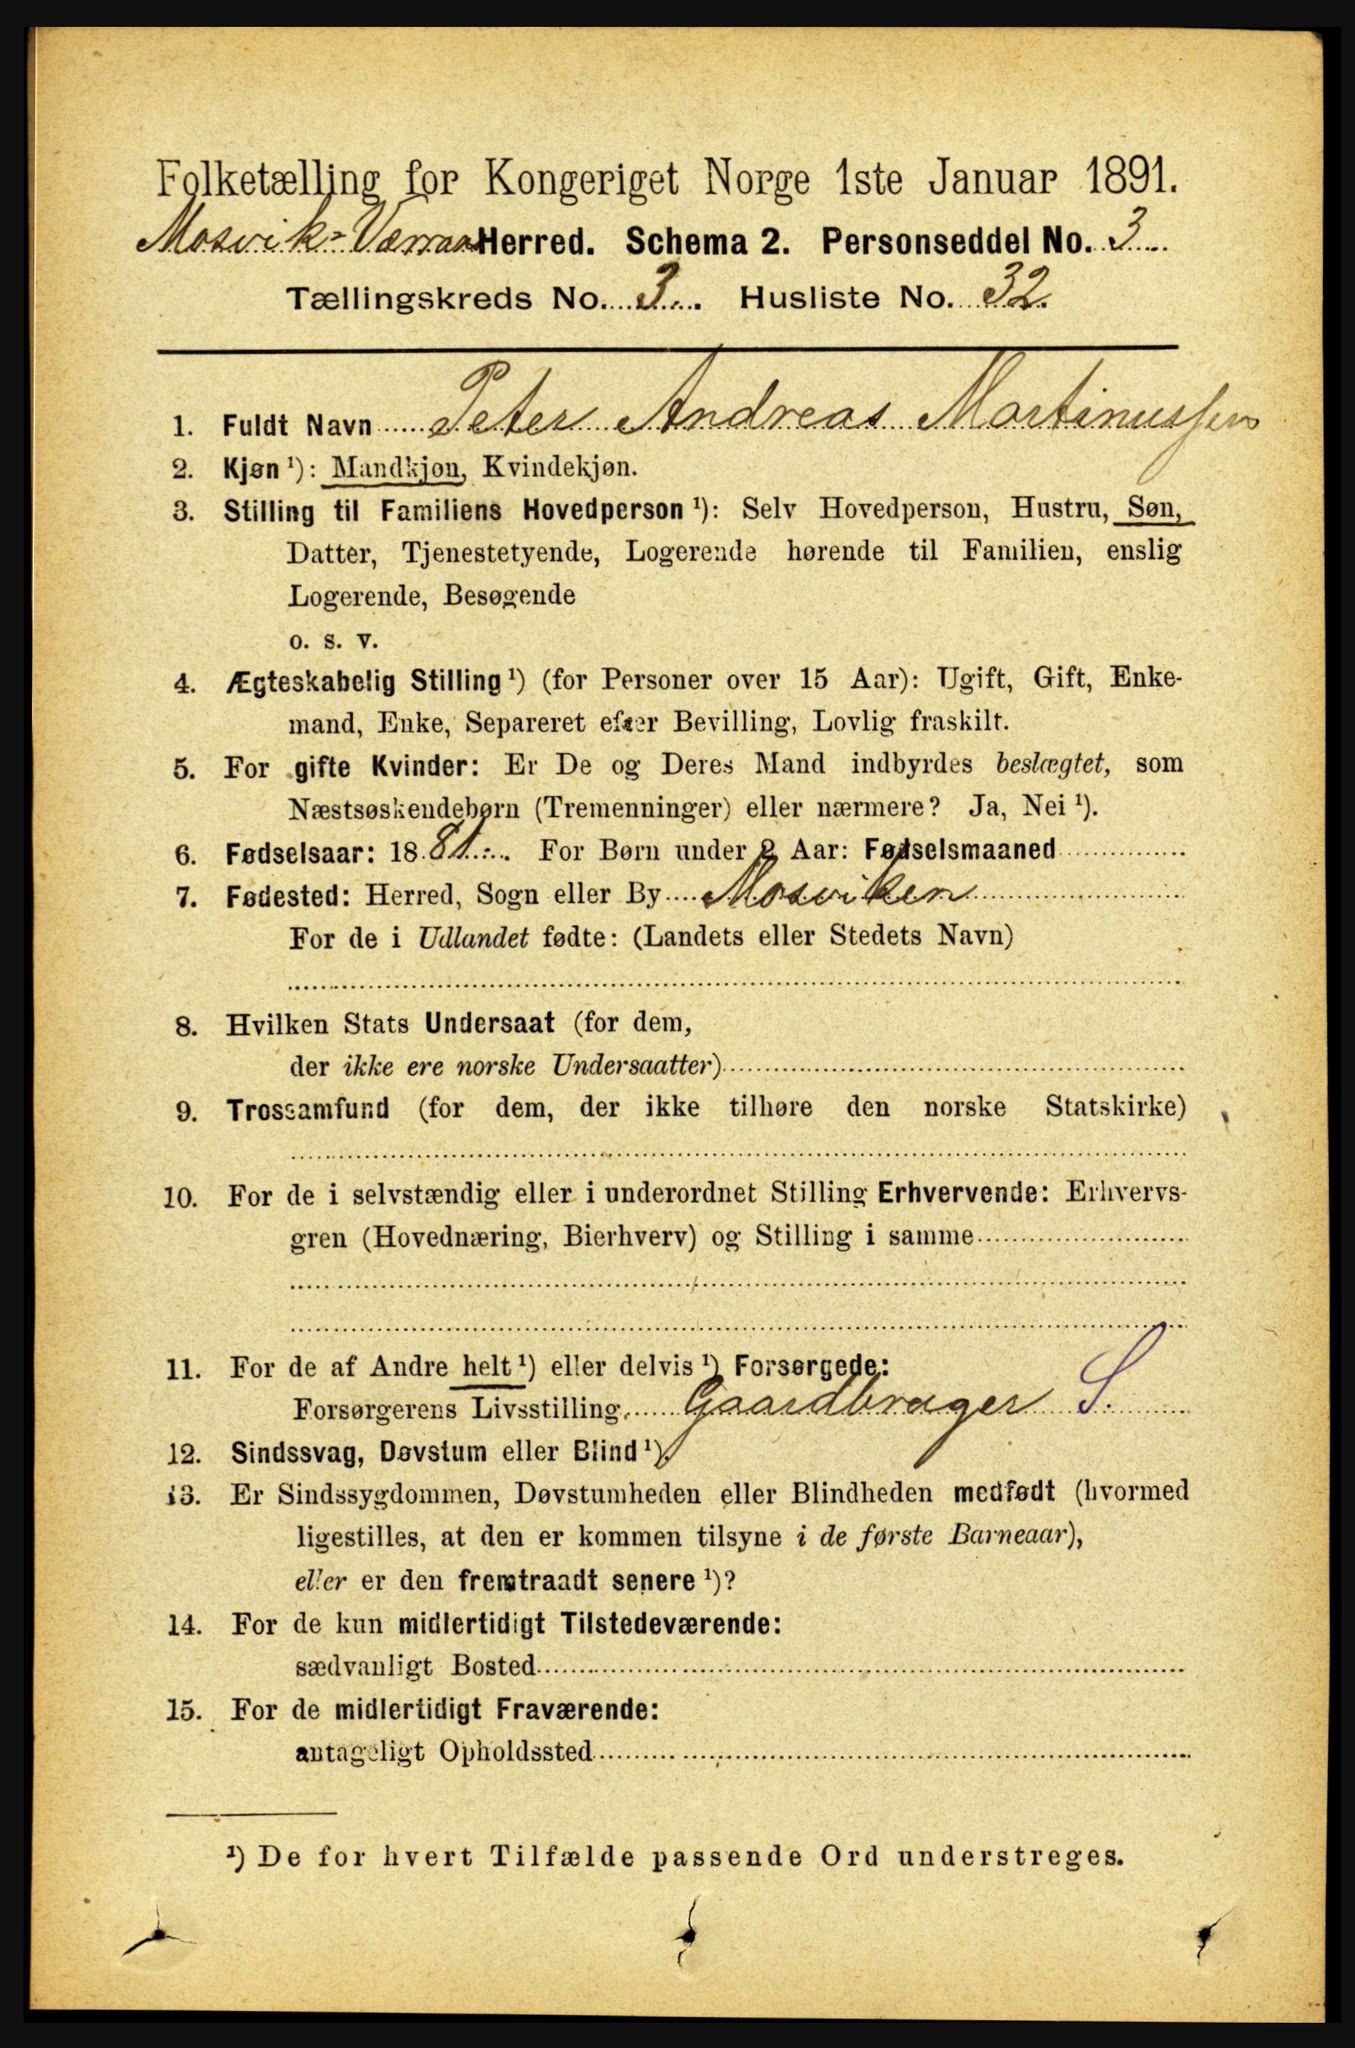 Folketælling for Kongeriget Norge 1ste Januar 1891.
Mosvik-Værran Herred. Schema 2. Personseddel No. 3
Tællingskreds No. 3. Husliste No. 32.
1. Fuldt Navn Peter Andreas Martinussen
2. Kjøn ¹): Mandkjøn, Kvindekjøn.
3. Stilling til Familiens Hovedperson ¹): Selv Hovedperson, Hustru, Søn,
Datter, Tjenestetyende, Logerende hørende til Familien, enslig
Logerende, Besøgende
o. s. v.
4. Ægteskabelig Stilling ¹) (for Personer over 15 Aar): Ugift, Gift, Enke-
mand, Enke, Separeret efter Bevilling, Lovlig fraskilt.
5. For gifte Kvinder: Er De og Deres Mand indbyrdes beslægtet, som
Næstsøskendebørn (Tremenninger) eller nærmere? Ja, Nei ¹).
6. Fødselsaar: 1881. For Børn under 2 Aar: Fødselsmaaned
7. Fødested: Herred, Sogn eller By Mosviken
For de i Udlandet fødte: (Landets eller Stedets Navn)
8. Hvilken Stats Undersaat (for dem,
der ikke ere norske Undersaatter)
9. Trossamfund (for dem, der ikke tilhøre den norske Statskirke)
10. For de i selvstændig eller i underordnet Stilling Erhvervende: Erhvervs-
gren (Hovednæring, Bierhverv) og Stilling i samme
11. For de af Andre helt ¹) eller delvis ¹) Forsørgede:
Forsørgerens Livsstilling Gaardbruger S.
12. Sindssvag, Døvstum eller Blind ¹).
13. Er Sindssygdommen, Døvstumheden eller Blindheden medfødt (hvormed
ligestilles, at den er kommen tilsyne i de første Barneaar),
eller er den fremtraadt senere ¹)?
14. For de kun midlertidigt Tilstedeværende:
sædvanligt Bosted
15. For de midlertidigt Fraværende:
antageligt Opholdssted
¹) De for hvert Tilfælde passende Ord understreges.